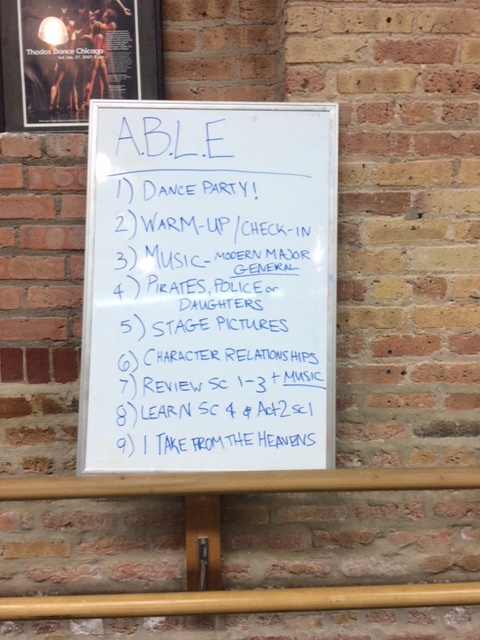 Thodos Dance Chicago
A.B.L.E
1) DANCE PARTY!
2) WARM-UP/CHECK-IN
3) MUSIC- MODERN MAJOR
GENERAL
4) PIRATES, POLICE or
DAUGHTERS
5) STAGE PICTURES
6) CHARACTER RELATIONSHIPS
7) REVIEW SC 1-3 + MUSIC
8) LEARN SC 4 & Act 2 sc 1
9) I TAKE FROM THE HEAVENS